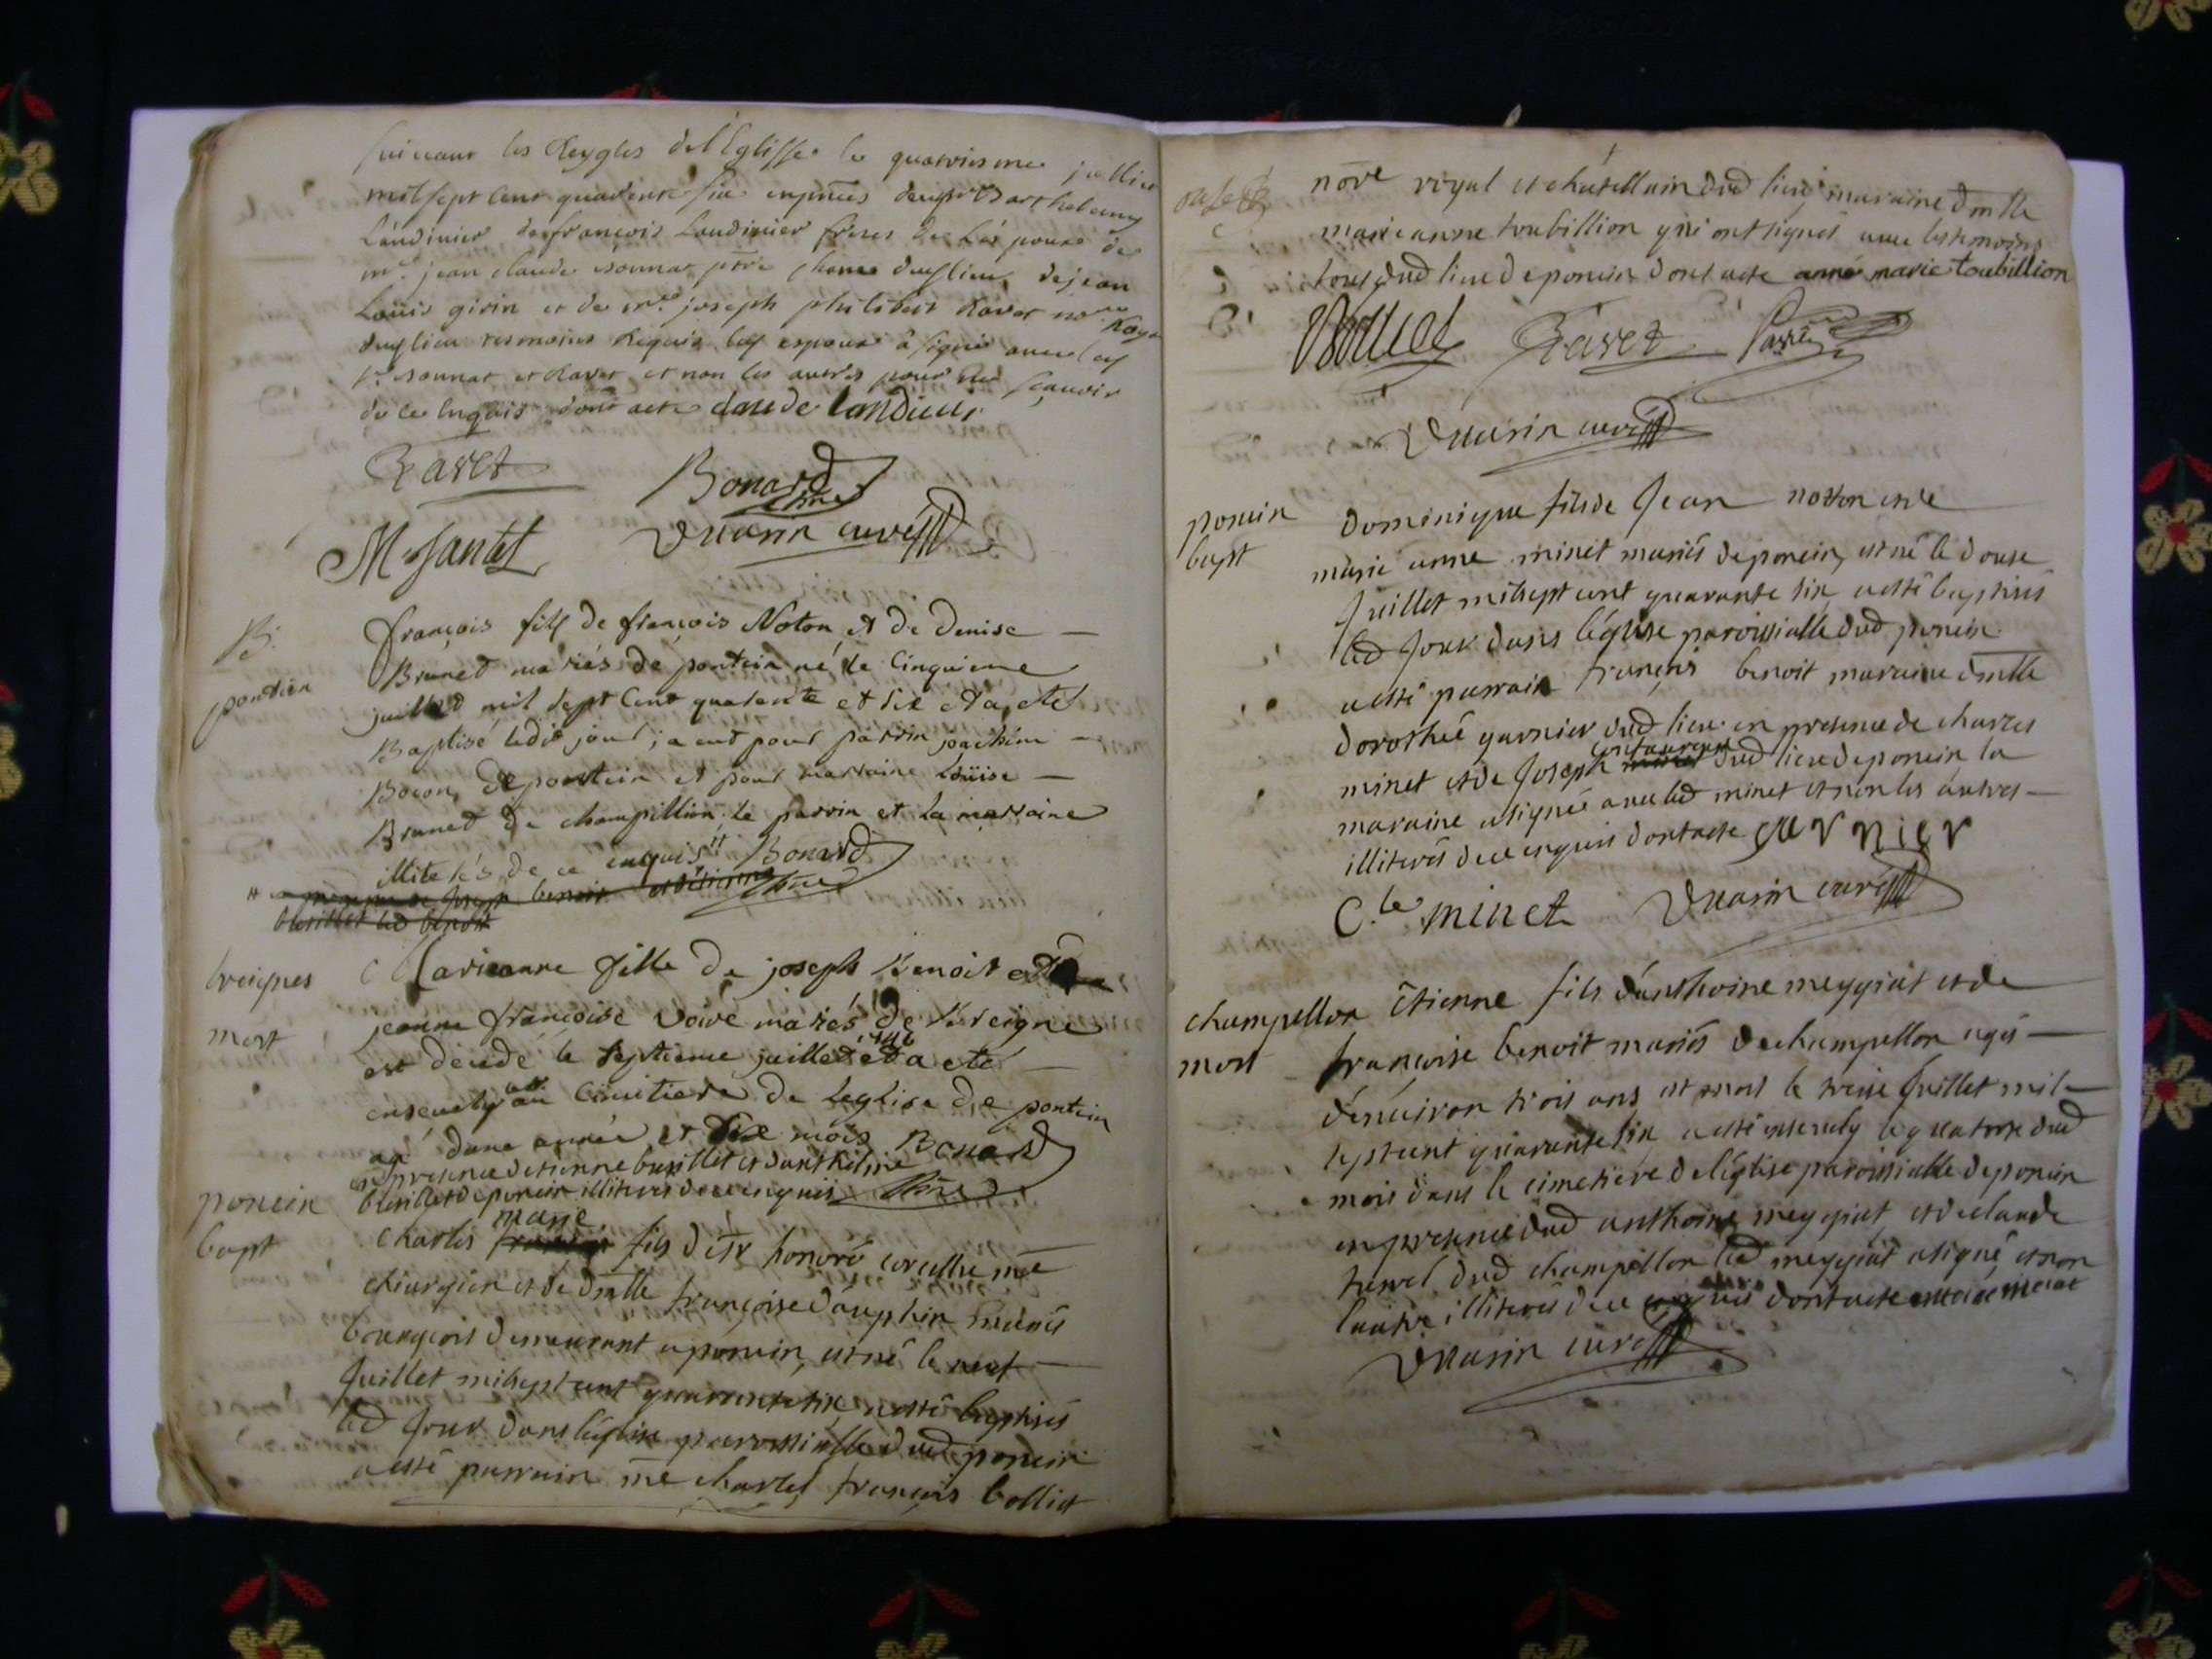 suivant les Reygles del'Eglisse le quatriesme jullier
mil sept cent quarente six en pnces de Barthelemy
Landinier de françois Landinier freres de
mre jean claude ptre dudlieu de jean
Louis girin et de mre joseph philibert Ravet nore Royal
dudlieu tesmoins Requis lesp espoux a signé avec les
sr et Ravet et non les autres pour ne sçavoir
de ce Enquis dont acte claude landinier
Ravet
Bonard
ptre
M Jantet
Vuarin curé
B.
pontien
françois fils de françois Noton et de Denise —
Brunet mariés de pontein né le Cinquieme
juilled mil sept Cent quatente et six et a eté
Baptisé ledit jour, a eut pour parrin joachim —
Bocon de pontein et pour marraine Loüise —
Brunet de champillion le parrin et la marraine
illiterés de ce enquis # Bonard
ptre
# en presence de Joseph benoit et d'étienne
busillet led benoit
breignes
mort
Marieanne fille de joseph Benoit et de
jeanne françoise voive mariés de Breigne
est decede le septieme juillet 1746 et a eté —
ensevely au Cimitiere de Leglise de pontein
agé dune année et six mois Bonard
en presence detienne busillet et danthelme
busillet de poncin illiteres de ce enquis ptre
poncin
bapt
Charles marie fils de sr honoré corcellu me
chiurgien et de dmlle françoise dauphin mariés
bourgeois demeurant a poncin, est né le neuf —
Juillet mil sept cent quarante six a esté baptisés
led Jour dans léglise parroissialle dud poncin
a esté parrain me charles françois bolliet
nore royal et chatellain dud lieu, maraine dmlle
marie anne toubillion qui ont signés avec les temoins
tous dud lieu de poncin dont acte anne marie toubillion
Bolliet Ravet
Vuarin curé
poncin
bapt
Dominique fils de Jean notton et de
marie anne minet mariés de poncin, est né le douse
Juillet mil sept cent quarante six a esté baptisés
led Jour dans léglise paroissialle dud poncin
a esté parrain françois benoit maraine dmlle
dorothée garnier dud lieu en presence de charles
minet et de Joseph dud lieu de poncin la
maraine a signée avec led minet et non les autres —
illiterés de ce enquis dont acte garnier
C.le minet Vuarin curé
champellon
mort
Etienne fils d'anthoine meygiat et de
françoise benoit mariés de champellon agés —
d'enuiron trois ans est mort le treise Juillet mil
sept cent quarante six a esté ensevely le quatorse dud
mois dans le cimetiere de léglise paroissialle de poncin
en presence dud anthoine meygiat, et de claude
dud champellon led meygiat a signé et non
lautre illiterés de ce enquis dont acte
Vuarin curé